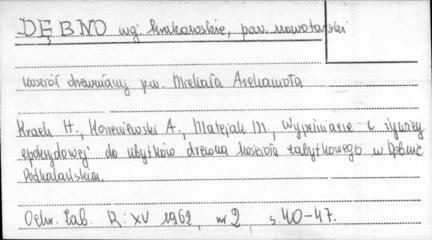 DĘBNO wg. krakowskie, pow. nowotarski
kościół drewniany p.w. Michała Archanioła
Krach H., Korzeniowski A., Matejak M., Wypełniacze z żywicy
epoksydowej do ubytków drewna kościoła zabytkowego w Dębnie
Podhalańskim.
Ochr. Zab. R: XV 1962, nr 2, s 40-47.